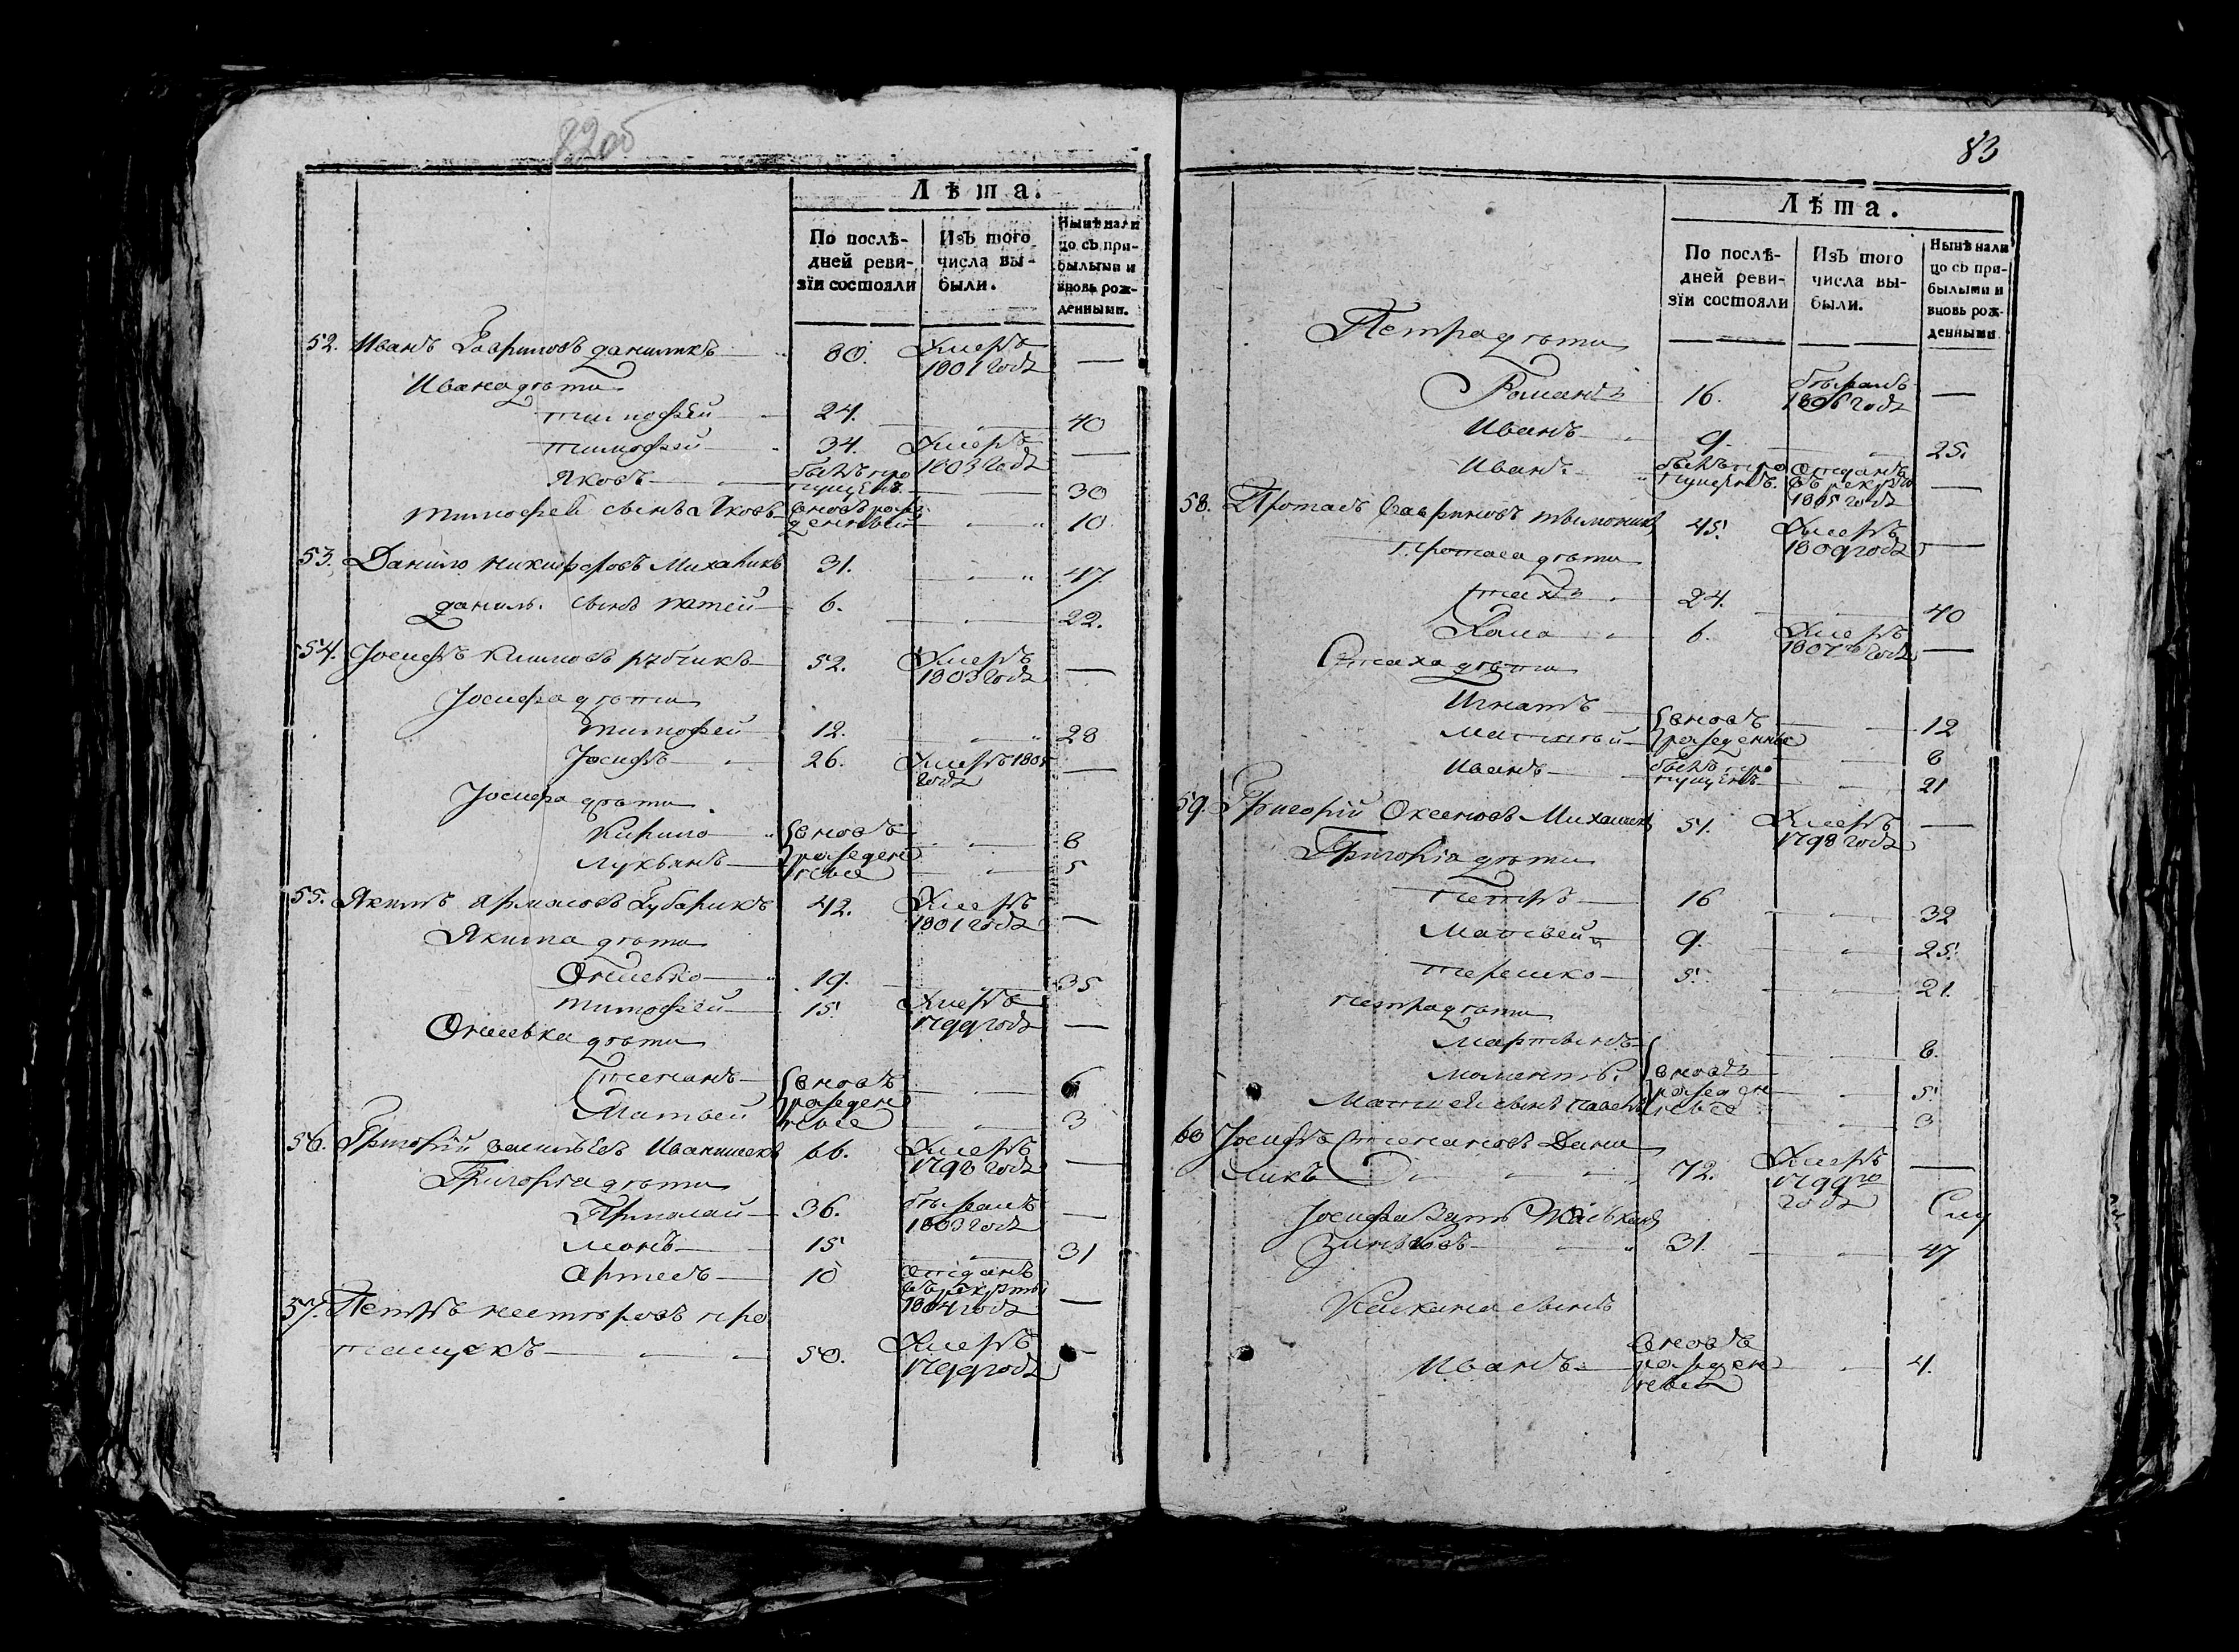 82об
Лѣта.
По послѣ-
дней реви-
зїи состояли
Изъ того
числа вы-
были.
Нынѣ нали
цо съ при-
былыми и
вновь рож-
денными.
52. Иванъ Гавриловъ даниликъ 80. Умеръ
1801 года —
Ивана дѣти
тимофей 24. — 40
тимофей 34. Умеръ
1803 года —
Яковъ былъ про
пущенъ — 30
тимофея сынъ Яковъ вновь рож
денный — 10
53. Данило никифоровъ Михаликъ 31. — 47
данилы сынъ 6. — 22.
54. Јосифъ Климовъ 52. Умеръ
1803 года —
Јосифа дѣти
тимофей 12. — 28
Јосифъ 26. Умеръ
года —
Јосифа дѣти
Кирило вновь — 8
Лукьянъ рожден
ные — 5
55. Якимъ Губарикъ 42. Умеръ
1801 года —
Якима дѣти
19. — 35
тимофей 15. Умеръ
1799 года —
дѣти
степанъ вновь — 6
Матвей рожден
ные — 3
56. Григорїй васильевъ Иванишекъ 66. Умеръ
1798 года —
Григорїя дѣти
Ярмолай 36. бѣжалъ
1803 года —
15 — 31
10 отданъ
въ рекруты
1804 года —
57. Петръ нестеровъ про
50. Умеръ
1799 года —
83
Лѣта.
По послѣ-
дней реви-
зїи состояли
Изъ того
числа вы-
были.
Нынѣ нали
цо съ при-
былыми и
вновь рож-
денными
Петра дѣти
Романъ 16. бѣжалъ
1806 года —
Иванъ 9. — 25.
Иванъ былъ про
пущенъ. отданъ
въ рекруты
1805 года —
58. Протасъ Гавриловъ 45. Умеръ
1809 года —
протаса дѣти
стахъ 24. — 40
Хома 6. Умеръ
1807го года —
Стаха дѣти
Игнатъ вновь — 12
рожденные — 8
Иванъ былъ про
пущенъ — 21
59. Григорїй Оксеновъ Михаликъ 51. Умеръ
1798 года —
Григорїя дѣти
петръ 16 — 32
Матвей 9. — 25.
терешко 5. — 21.
петра дѣти
Мартынъ — 8.
вновь
рожден — 5
Матвея сынъ павелъ ные — 3
60 Јосифъ Степановъ Дани
ликъ 72. Умеръ
1799го
года —
Јосифа Зять
31. — 47
сынъ
Иванъ вновь
рожден
ный — 4.